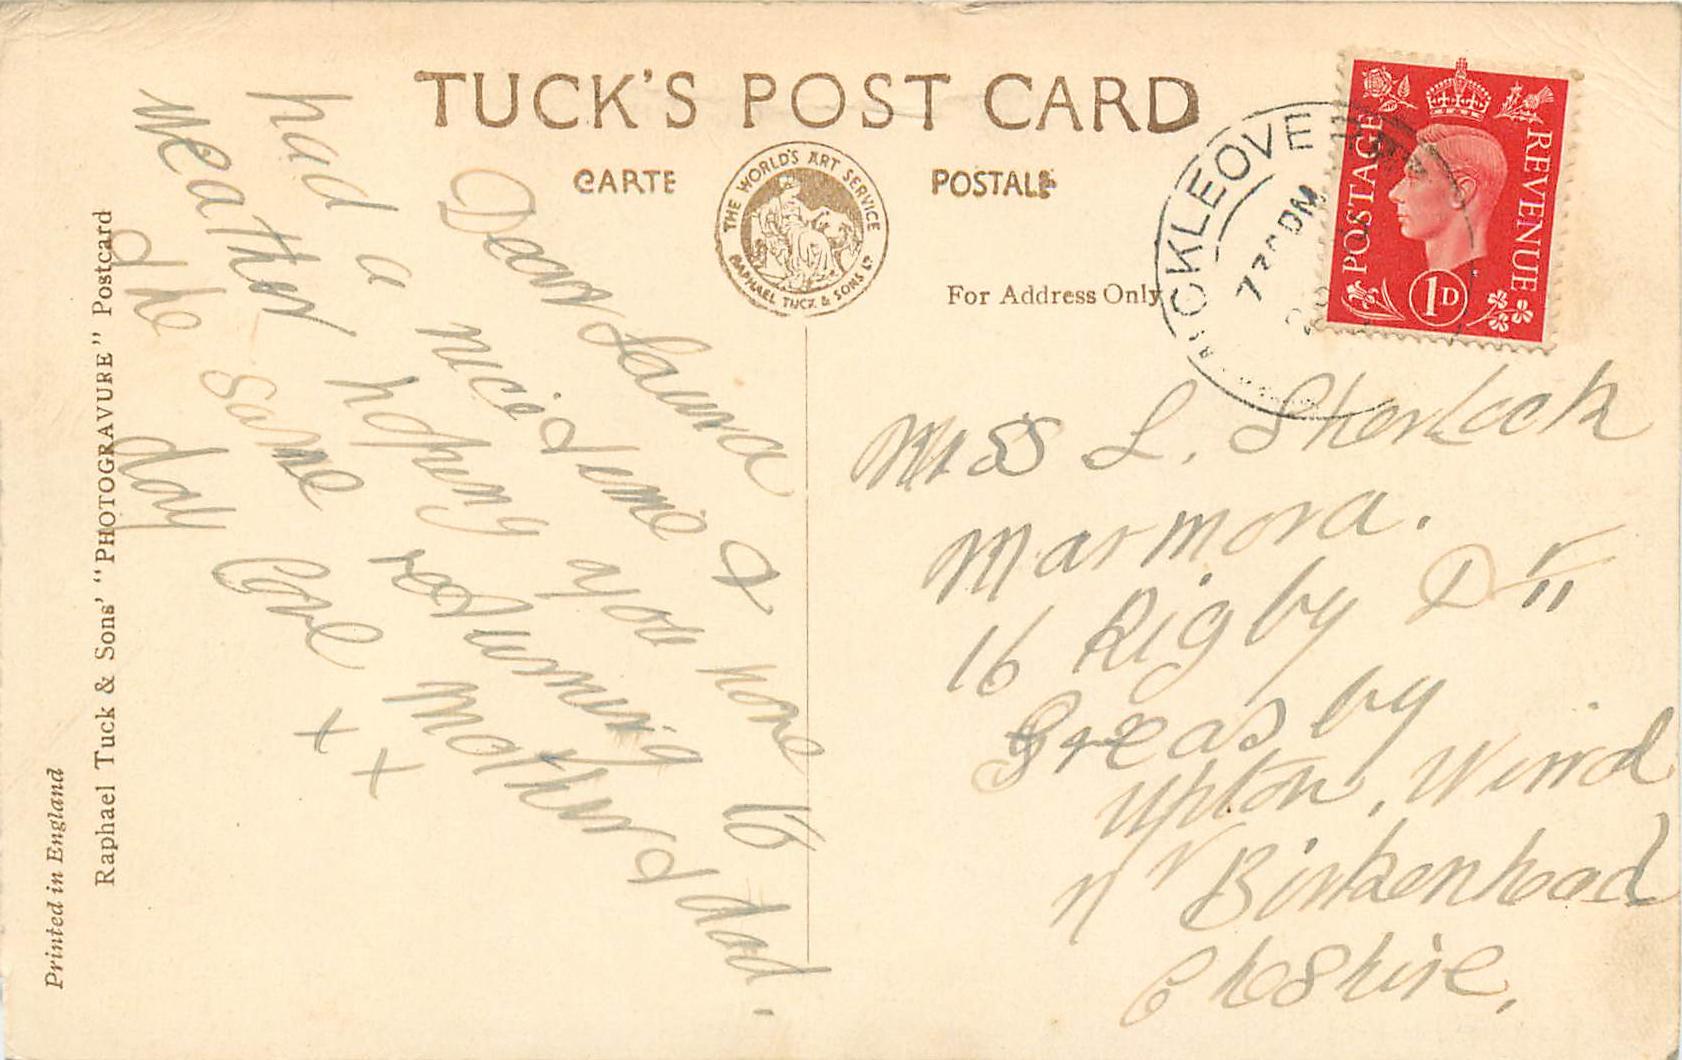 TUCK'S POST CARD
CARTE POSTALE
THE WORLD'S ART SERVICE
RAPHAEL TUCK & SONS LTD
For Address Only
ICKLEOVE
PM
POSTAGE REVENUE
1D
Dear Laura
had a nice time &
weather hoping you have
the same returning 16
day Love Mother & dad.
x x
Miss L. Sherlock
Marmora.
16 Rigby Dr
Greasby
Upton, Wirral
nr Birkenhead
Cheshire.
Raphael Tuck & Sons' "PHOTOGRAVURE" Postcard
Printed in England